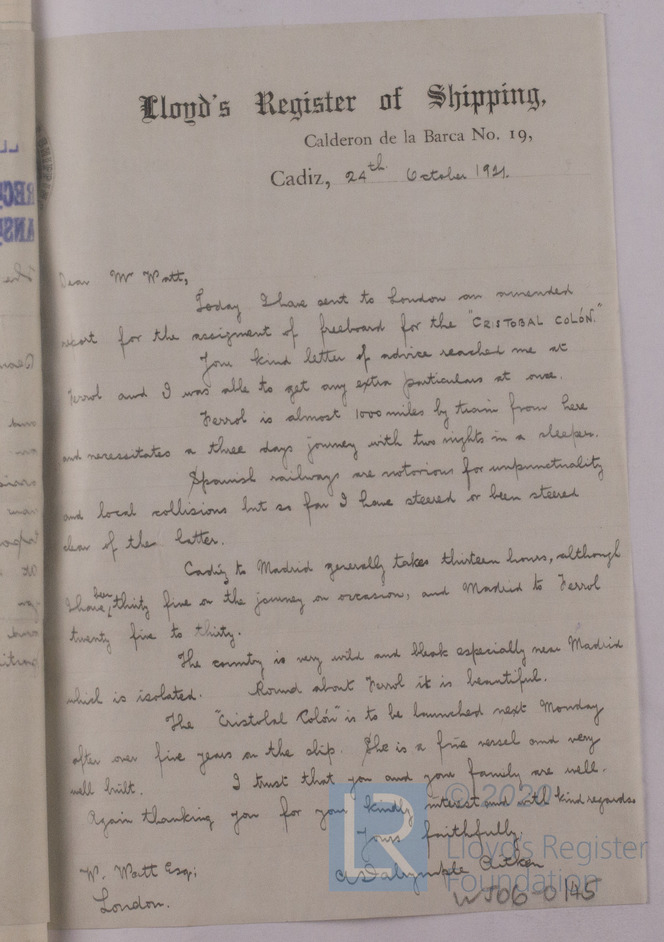 Lloyd's Register of Shipping,
Calderon de la Barca No. 19,
Cadiz, 24th October 1921.
Dear Mr Watt,
Today I have sent to London an amended
report for the assigment of freeboard for the "CRISTOBAL COLÓN."
Your kind letter of advice reached me at
Ferrol and I was able to get any extra particulars at once.
Ferrol is almost 1000 miles by train from here
and necessitates a three days journey with two nights in a sleeper.
Spanish railways are notorious for unpunctuality
and local collisions but so far I have steered or been steered
clear of the latter.
Cadiz to Madrid generally takes thirteen hours, although
I have been thirty five on the journey on occasion, and Madrid to Ferrol
twenty five to thirty.
The country is very wild and bleak especially near Madrid
which is isolated. Round about Ferrol it is beautiful.
The "Cristobal Colón" is to be launched next Monday
after over five years on the ship. She is a fine vessel and very
well built. I trust that you and your family are well.
Again thanking you for your kindly interest and with kind regards
Yours faithfully,
A Dalrymple Aitken
W. Watt Esq:
London.
WJ06-0145
LR
Lloyd's Register
Foundation